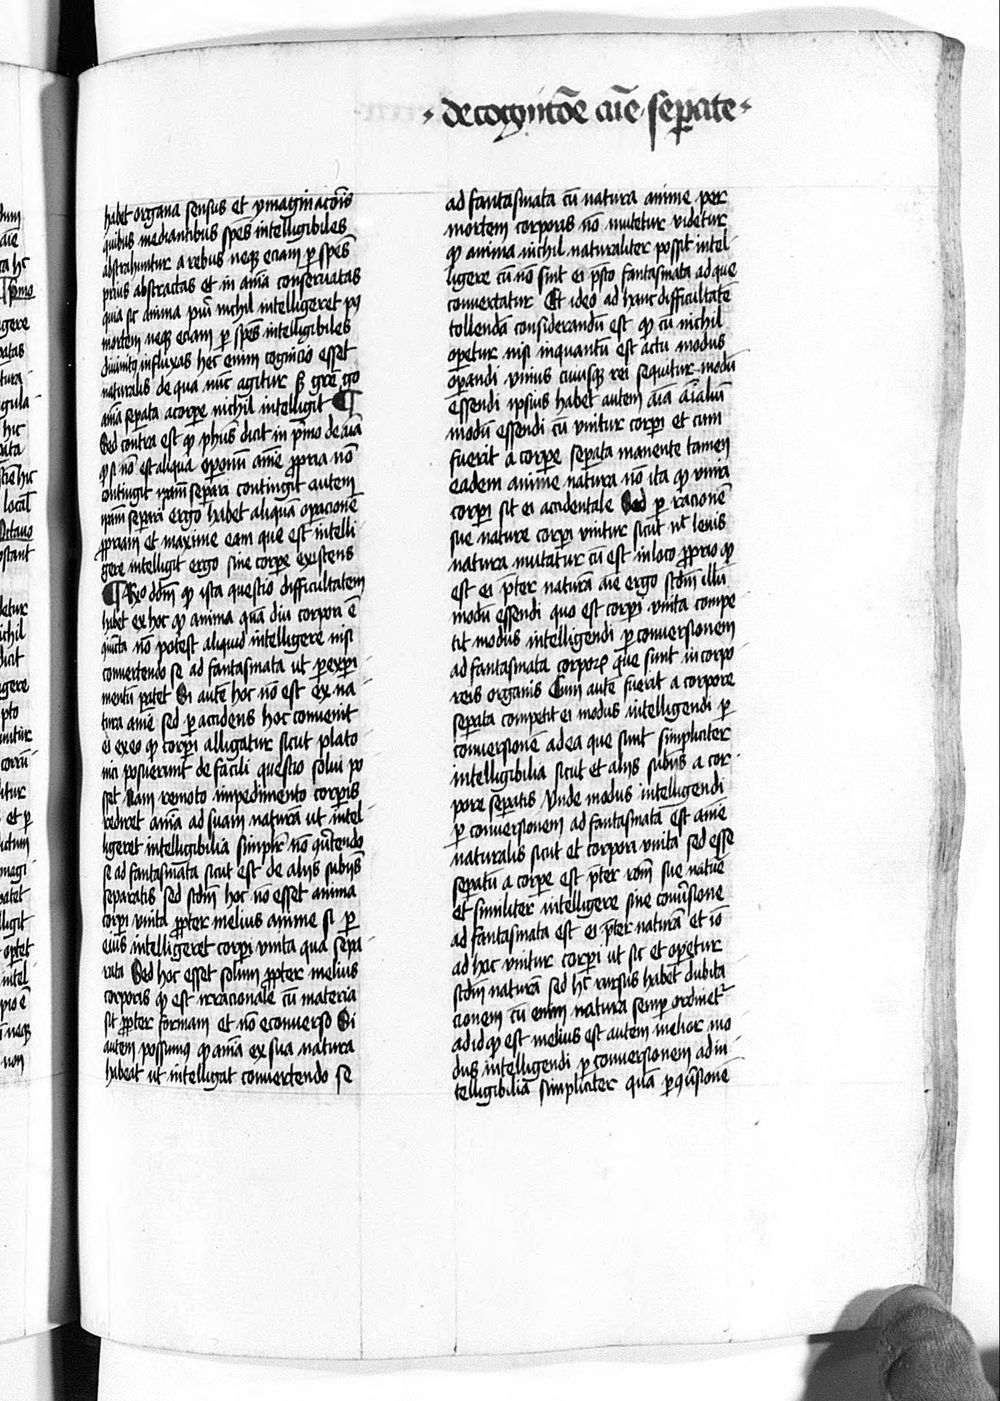 de cognitõe aĩe sepate
habet organa sensus et ymaginacõis
quibus mediantibus spẽs intelligibiles
abstrahuntur a rebus neqз eciam p spẽs
prius abstractas et in aĩa conservatas
quia sic anima pueri nichil intelligeret pꝰ
mortem neqз eciam p spẽs intelligibiles
divinitꝰ influxas hec enim cognicio esset
naturalis de qua nũc agitur gre̅ go
aĩa sepata a corpe nichil intelligit ¶
Sed contra est qꝫ phũs dicit in pmo de aĩa
qꝫ si nõ est aliqua opconũ aĩe ppria nõ
contingit ipam separi contingit autem
ipam separi ergo habet aliquã opacionẽ
ppriam et maxime eam que est intelli
gere intelligit ergo sine corpe existens
¶ Rño dõm qꝫ ista questio difficultatem
habet ex hoc qꝫ anima quã diu corpori ẽ
iũcta nõ potest aliquid intelligere nisi
convertendo se ad fantasmata ut p expi
mentũ patet Si autẽ hoc nõ est ex na
tura aĩe sed p accidens hoc convenit
ei ex eo qꝫ corpi alligatur sicut plato
nici posuerunt de facili questio solvi po
set Nam remoto impedimento corpis
rediret aĩa ad suam naturã ut intel
ligeret intelligibilia simplr nõ cõvtendo
se ad fantasmata sicut est de aliis subiis
separatis sed scdm hoc nõ esset anima
corpi unita ppter melius anime si p
eius intelligeret corpi unita quã sepa
rata Sed hoc esset solum ppter melius
corporis qꝫ est irracionale cũ materia
sit ppter formam et nõ econverso Si
autem possumꝰ qꝫ aĩa ex sua natura
habeat ut intelligat convertendo se
ad fantasmata cũ natura anime per
mortem corporis nõ mutetur videtur
qꝫ anima nichil naturaliter possit intel
ligere cũ nõ sint ei psto fantasmata ad que
convertatur Et ideo ad hanc difficultatẽ
tollendã considerandũ est qꝫ cũ nichil
opetur nisi inquantũ est actu modus
opandi unius cuiusqз rei sequitur modũ
essendi ipsius habet autem aĩa aliũ
modũ essendi cũ unitur corpi et cum
fuerit a corpe sepata manente tamen
eadem anime natura nõ ita qꝫ uniri
corpi sit ei accidentale Sed p racionẽ
sue nature corpi unitur sicut nec levis
natura mutatur cũ est in loco pprio qꝫ
est ei pter naturã aĩe ergo scdm illũ
modũ essendi quo est corpi unita compe
tit modus intelligendi p conversionem
ad fantasmata corporꝫ que sunt in corpo
reis organis Cum autẽ fuerit a corpore
sepata competit ei modus intelligendi p
conversionẽ ad ea que sunt simpliciter
intelligibilia sicut et aliis subiis a cor
pore sepatis Unde modus intelligendi
p conversionem ad fantasmata est aĩe
naturalis sicut et corpori uniri sed esse
sepatũ a corpe est pter rõm sue natue
et similiter intelligere sine convsione
ad fantasmata est ei pter naturã et iõ
ad hoc unitur corpi ut sic et opetur
scdm naturã sed hꝰ rursus habet dubita
cionem cũ enim natura semp ordinetr
ad id qꝫ est melius est autem melior mo
dus intelligendi p conversionem ad in
telligibilia simpliciter quã p cõvsione